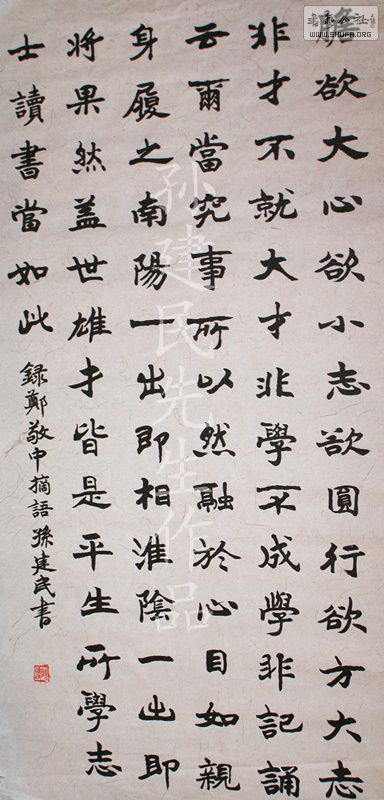 膽欲大心欲小志欲圓行欲方大志
非才不就大才非學不成學非記誦
云爾當究事所以然融於心目如親
身履之南陽一出即相淮陰一出即
將果然蓋世雄才皆是平生所學志
士讀書當如此
録鄭敬中摘語孫建民書
孙建民先生作品
WWW.SHUFA.ORG